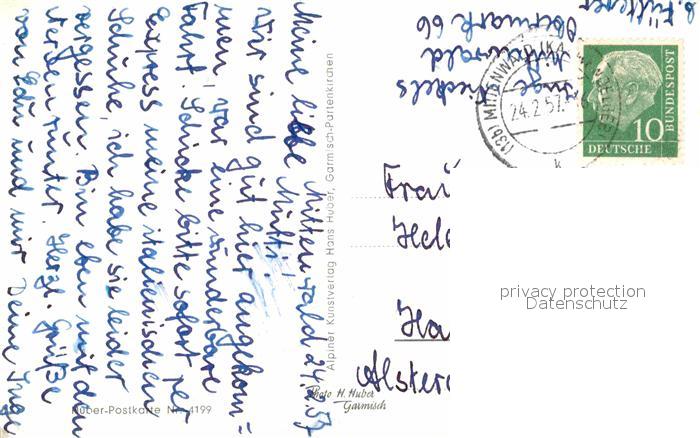 Mittenwald 24.2.57
Meine liebe Mutti!
Wir sind gut hier angekom=
men, war eine wunderbare
Fahrt. Schicke bitte sofort per
Express meine italienischen
Schuhe, ich habe sie leider
vergessen. Bin eben mit dem
Herzl. Grüße
von Edu und mir Deine Inge
Alpiner Kunstverlag Hans Huber, Garmisch-Partenkirchen
Huber-Postkarte Nr. 4199
Photo H. Huber
Garmisch
Inge
Mittenwald
Obermark 66
(13b) MITTENWALD (KA
24.2.57
k
10
DEUTSCHE
BUNDESPOST
Frau
Hel
Ha
Alster
privacy protection
Datenschutz